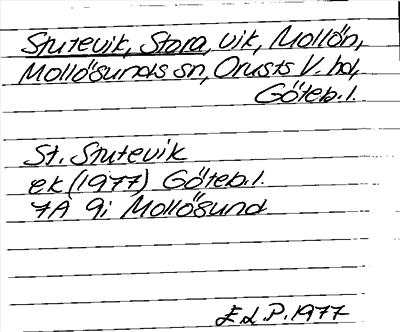 Stutevik, Stora, vik, Mollön,
Mollösunds sn, Orusts V. hd,
Göteb.l.
St. Stutevik
ek (1977) Göteb.l.
7A 9i Mollösund
E L P. 1977